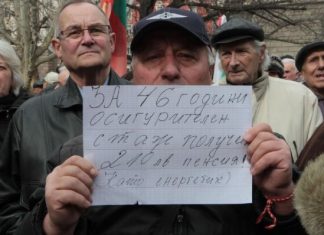 ЗА 46 години
осигурителен
стаж получих
210 лв пенсия!
(като енергетик)